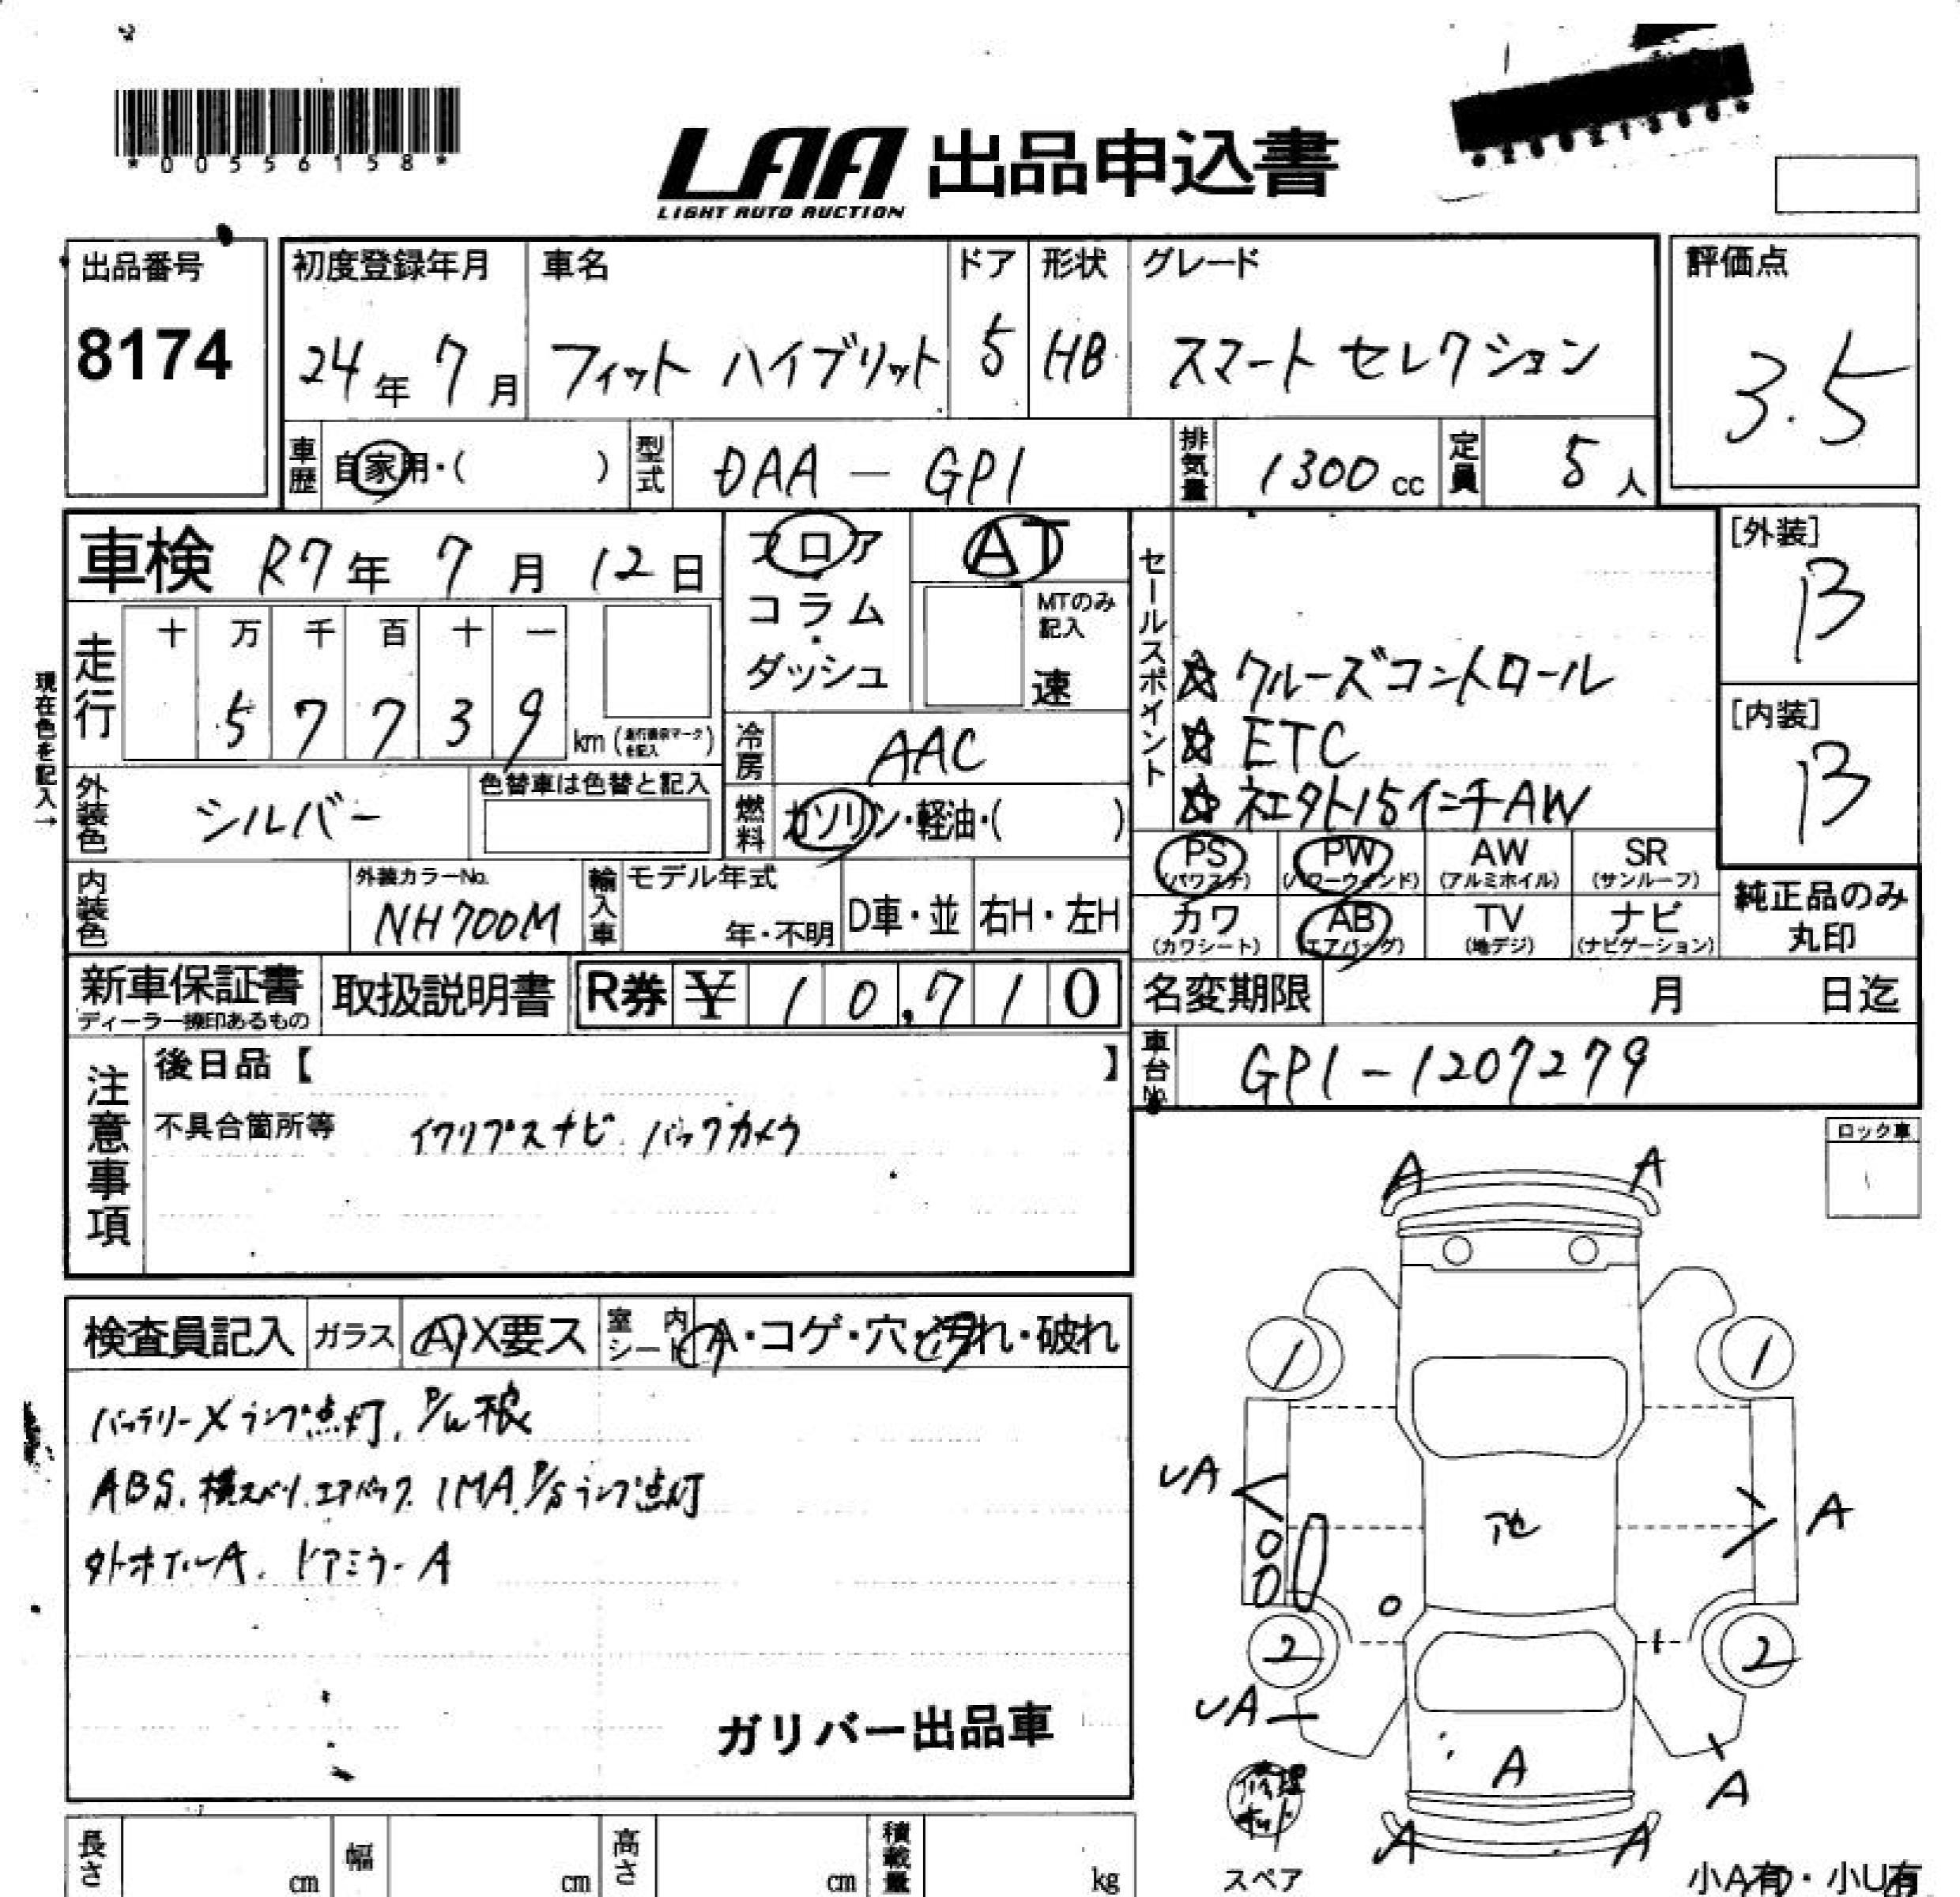 *00556158*
LAA 出品申込書
LIGHT AUTO AUCTION
出品番号
8174
初度登録年月
24年 7月
車名
フィット ハイブリット
ドア
5
形状
HB
グレード
スマート セレクション
評価点
3.5
車歴
自家用・( )
型式
DAA - GP1
排気量
1300 cc
定員
5人
車検 R7年 7月 12日
フロア・コラム・ダッシュ
AT
MTのみ記入
速
セールスポイント
☆ クルーズコントロール
☆ ETC
☆ 社外15インチAW
[外装]
B
[内装]
B
現在色を記入→
走行
十 万 千 百 十 一
5 7 7 3 9 km
冷房
AAC
外装色
シルバー
色替車は色替と記入
燃料
ガソリン・軽油・( )
内装色
外装カラーNo.
NH700M
輸入車
モデル年式
年・不明
D車・並
右H・左H
PS (パワステ)
PW (パワーウィンド)
AW (アルミホイル)
SR (サンルーフ)
カワ (カワシート)
AB (エアバッグ)
TV (地デジ)
ナビ (ナビゲーション)
純正品のみ
丸印
新車保証書
ディーラー捺印あるもの
取扱説明書
R券 ¥ 10,710
名変期限 月 日迄
車台No.
GP1-1207279
注意事項
後日品【 】
不具合箇所等 イクリプスナビ バックカメラ
ロック車
検査員記入
ガラス
A・X要ス
室内シート
A・コゲ・穴・汚れ・破れ
バッテリーXランプ点灯. P/W不良
ABS. 横スベリ. エアバック. IMA. P/Sランプ点灯
外ホイールA. ドアミラーA
ガリバー出品車
A A
1 1
UA
A
2 2
UA
A
A
A A
修理キット
スペア
小A有・小U有
長さ cm
幅 cm
高さ cm
積載量 kg